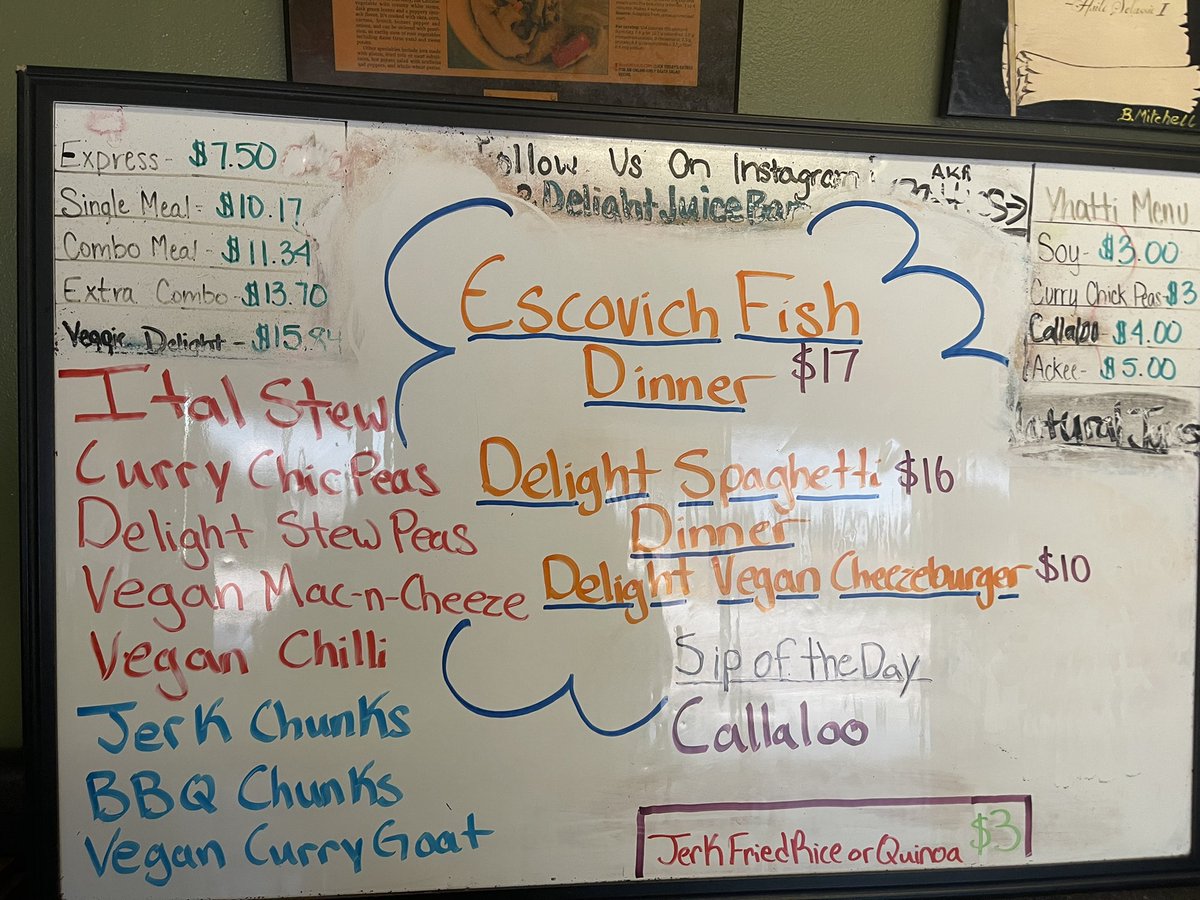 Haile Selassie I
B. Mitchell
Express - $7.50
Single Meal - $10.17
Combo Meal - $11.34
Extra Combo - $13.70
Veggie Delight - $15.84
Follow Us On Instagram
Delight Juice Bar
AKA
Yhatti Menu
Soy - $3.00
Curry Chick Peas - $3
Callaloo $4.00
Ackee - $5.00
Ital Stew
Curry ChicPeas
Delight Stew Peas
Vegan Mac-n-Cheeze
Vegan Chilli
Jerk Chunks
BBQ Chunks
Vegan Curry Goat
Escovich Fish
Dinner $17
Delight Spaghetti $16
Dinner
Delight Vegan Cheezeburger $10
Sip of the Day
Callaloo
Jerk Fried Rice or Quinoa $3